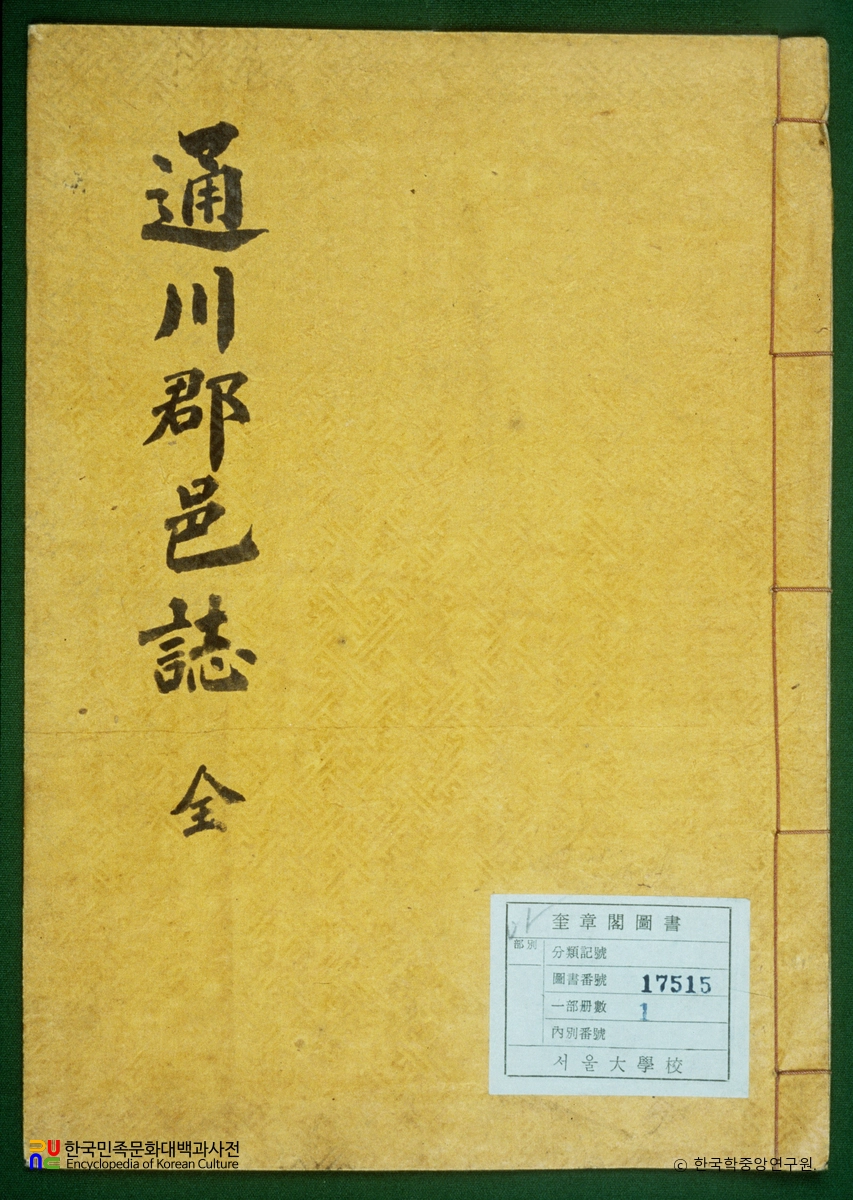 通川郡邑誌 全
奎章閣圖書
部別
分類記號
圖書番號 17515
一部册數 1
內別番號
서울大學校
한국민족문화대백과사전
Encyclopedia of Korean Culture
© 한국학중앙연구원